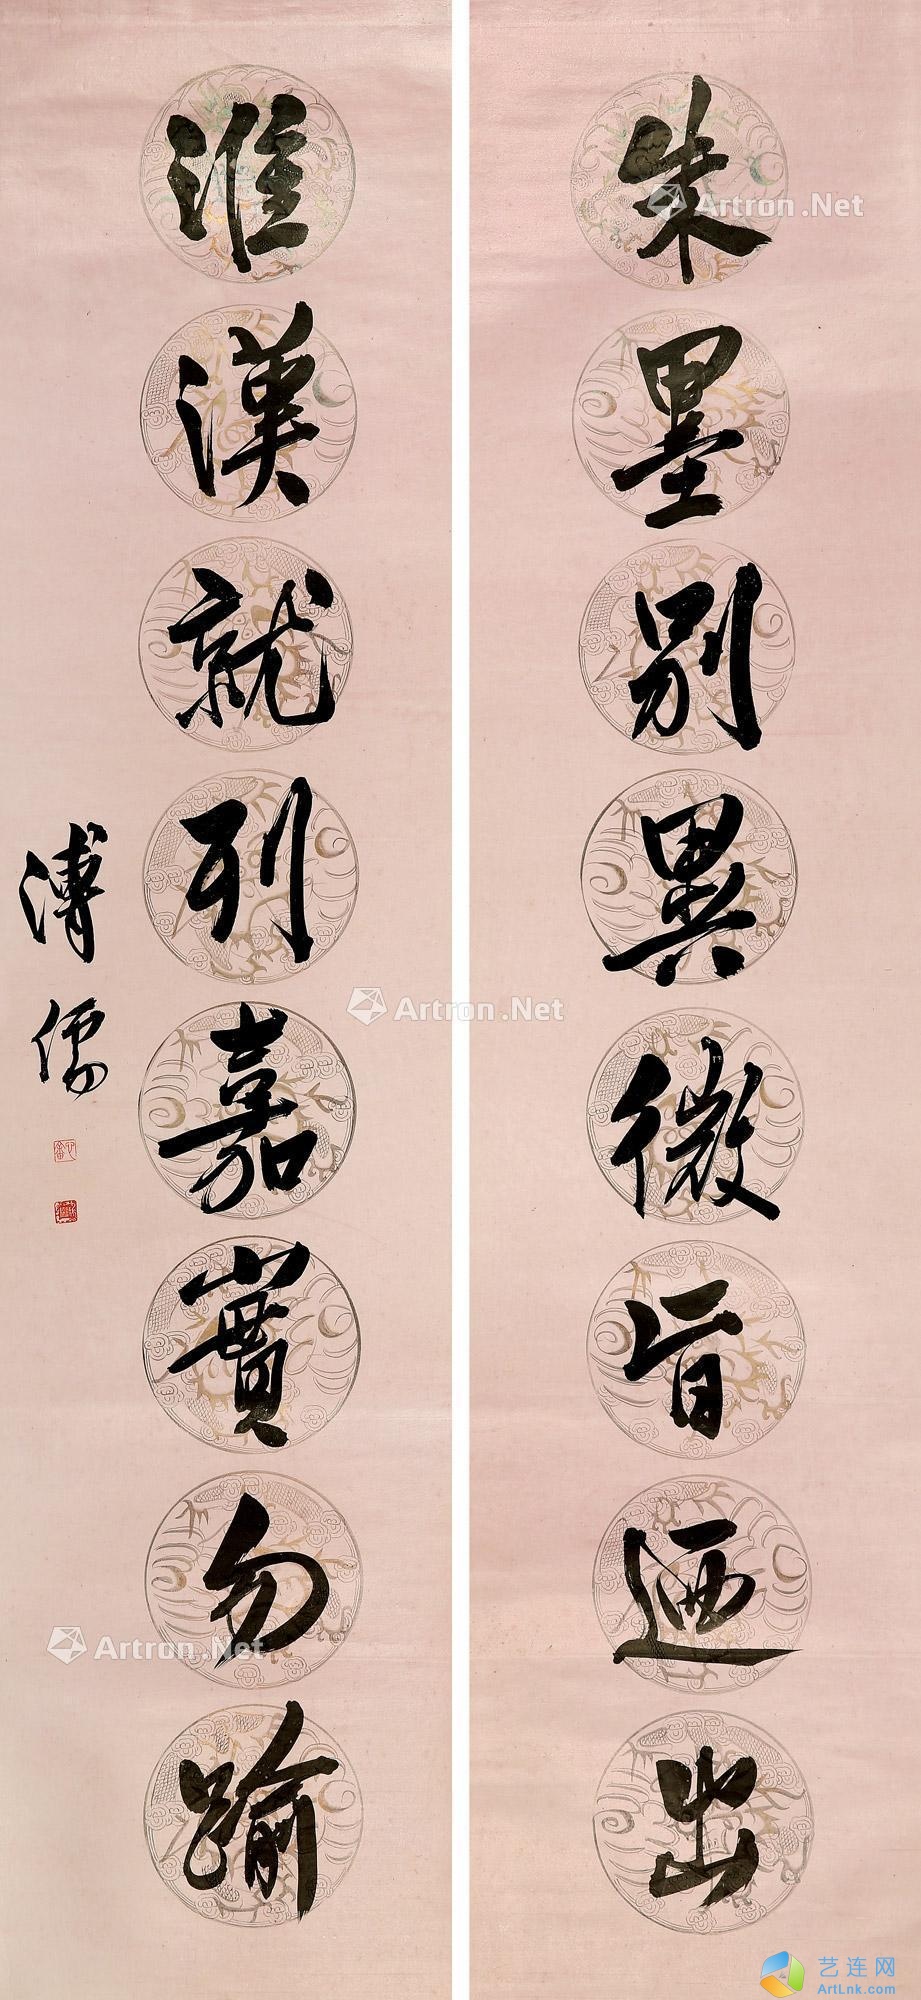 朱墨別異微旨迺出
淮漢就列嘉實勿踰
溥儒
Artron.Net
Artron.Net
Artron.Net
艺连网
ArtLnk.com